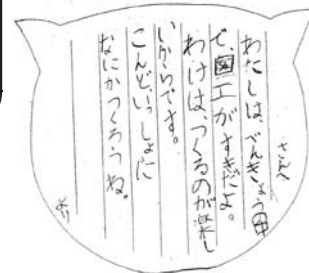 さんへ
わたしは、べんきょう中
で、図工がすきだよ。
わけは、つくるのが楽し
いからです。
こんど、いっしょに
なにかつくろうね。
より